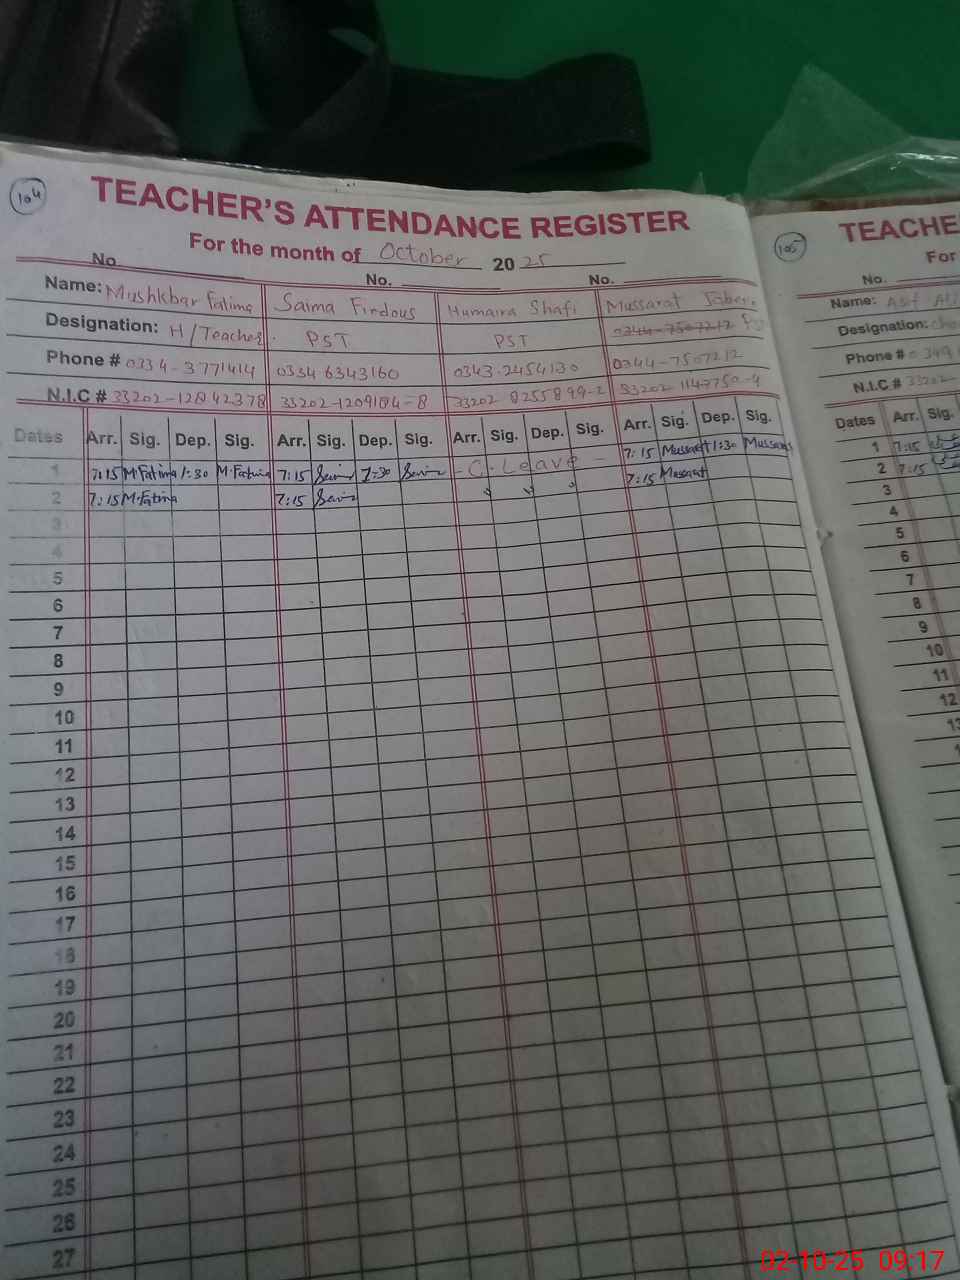 104
TEACHER'S ATTENDANCE REGISTER
For the month of October 2025
No. No. No.
Name: Mushkbar Fatima Saima Firdous Humaira Shafi Mussarat
Designation: H/Teacher. PST PST 0344-7507212
Phone # 0334-3771414 0334 6343160 0343-2454130 0344-7507212
N.I.C # 33202-12842378 33202-1209184-8 33202 8255899-2 33202 1147750-4
Dates Arr. Sig. Dep. Sig. Arr. Sig. Dep. Sig. Arr. Sig. Dep. Sig. Arr. Sig. Dep. Sig.
1 7:15 M.Fatima 1:30 M.Fatima 7:15 1:30 - C. Leave - 7:15 Mussarat 1:30 Mussarat
2 7:15 M.Fatima 7:15 7:15 Mussarat
3
4
5
6
7
8
9
10
11
12
13
14
15
16
17
18
19
20
21
22
23
24
25
26
27
105
TEACHE
For
No.
Name: Asif
Designation:
Phone # 0349
N.I.C # 33202-
Dates Arr. Sig.
1 7:15
2 7:15
3
4
5
6
7
8
9
10
11
12
13
02-10-25 09:17